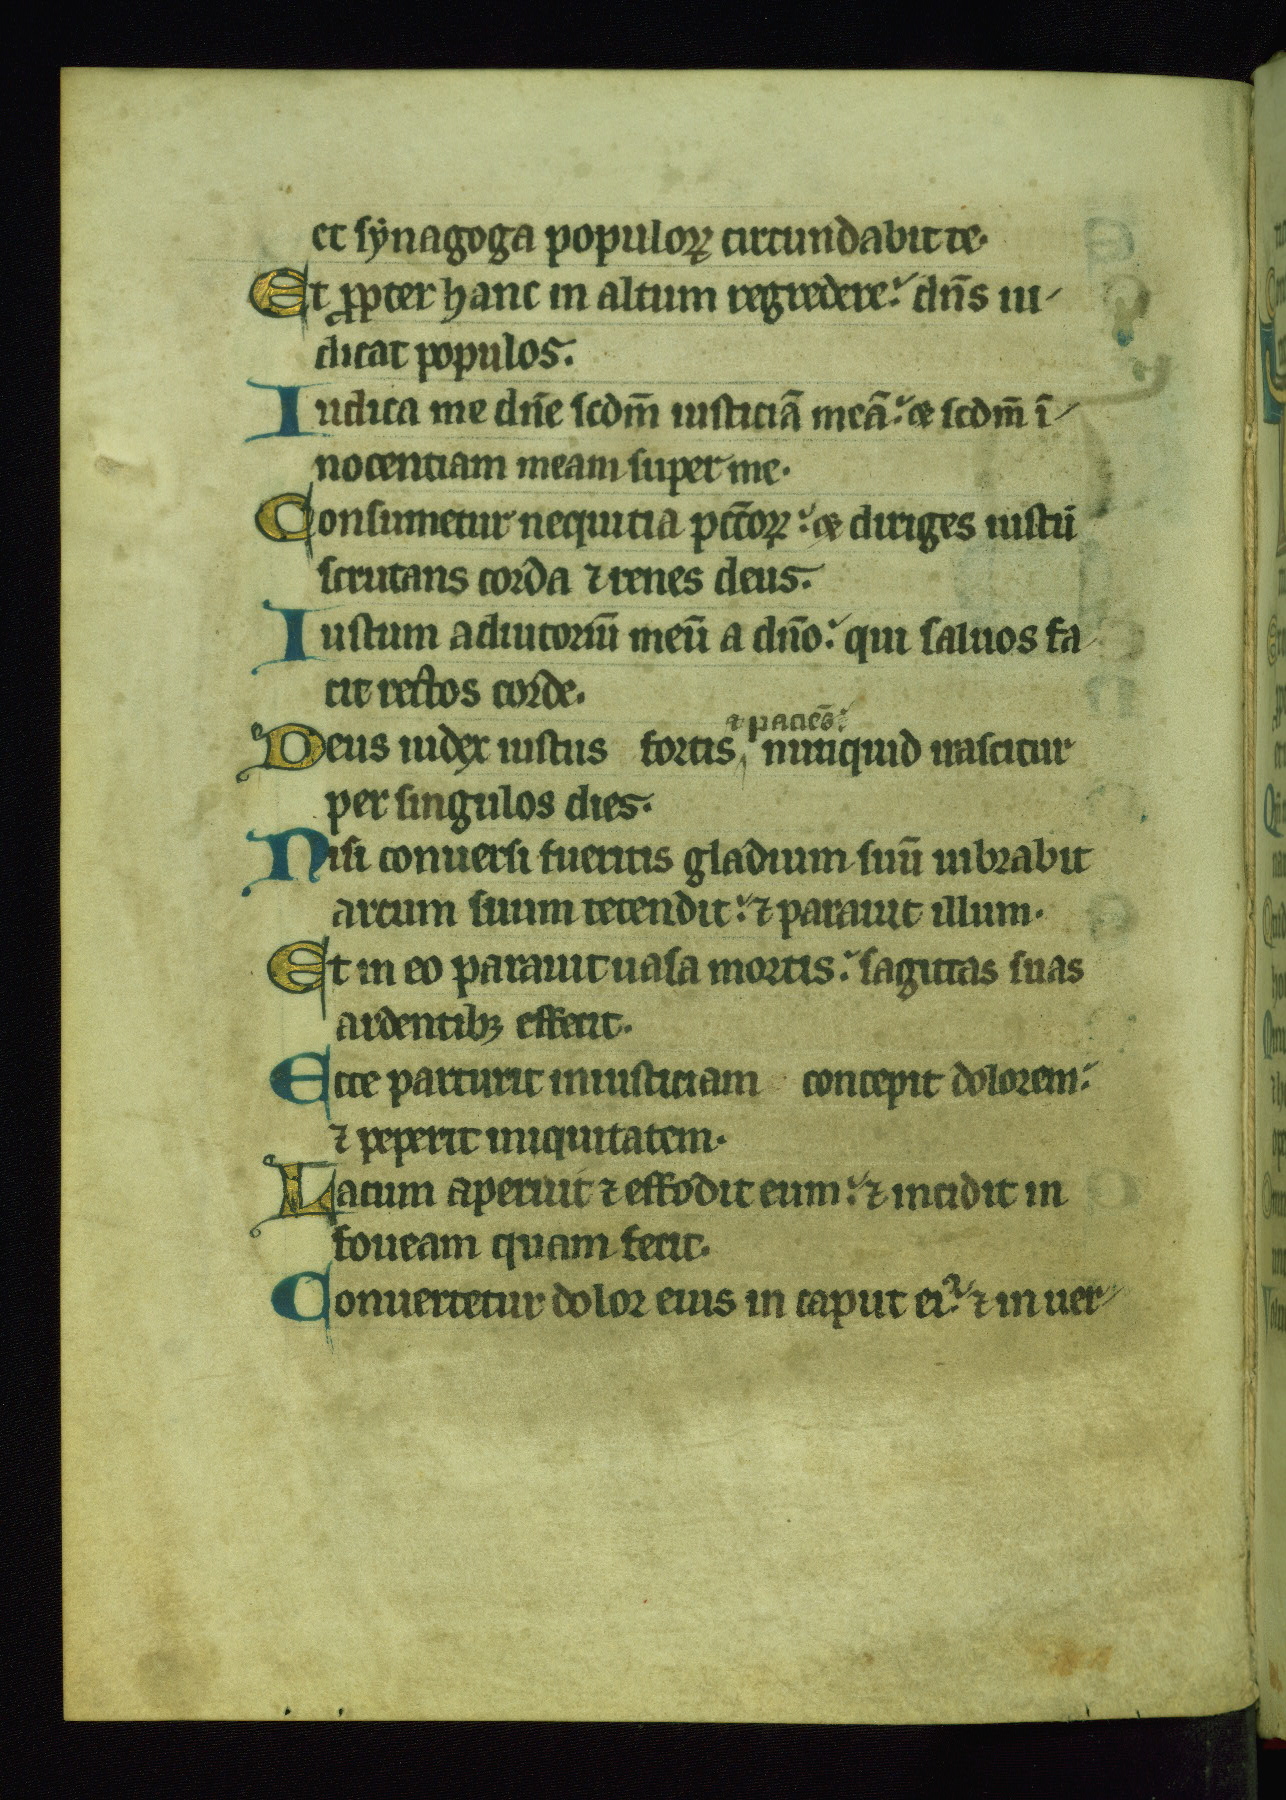 et synagoga populoꝝ circundabit te.
Et ꝓpter hanc in altum regredere: dn̄s iu-
dicat populos.
Iudica me dn̄e scdm̄ iusticiā meā: ⁊ scdm̄ ī-
nocentiam meam super me.
Consumetur nequitia pcc̄oꝝ: ⁊ diriges iustū
scrutans corda ⁊ renes deus.
Iustum adiutoriū meū a dn̄o: qui saluos fa
cit rectos corde.
⁊ paciēs:
Deus iudex iustus fortis, nunquid irascitur
per singulos dies.
Nisi conuersi fueritis gladium suū uibrabit
arcum suum tetendit: ⁊ parauit illum.
Et in eo parauit uasa mortis: sagittas suas
ardentibꝫ effecit.
Ecce parturit iniusticiam concepit dolorem:
⁊ peperit iniquitatem.
Lacum aperuit ⁊ effodit eum: ⁊ incidit in
foueam quam fecit.
Conuertetur dolor eius in caput eiꝰ: ⁊ in uer-